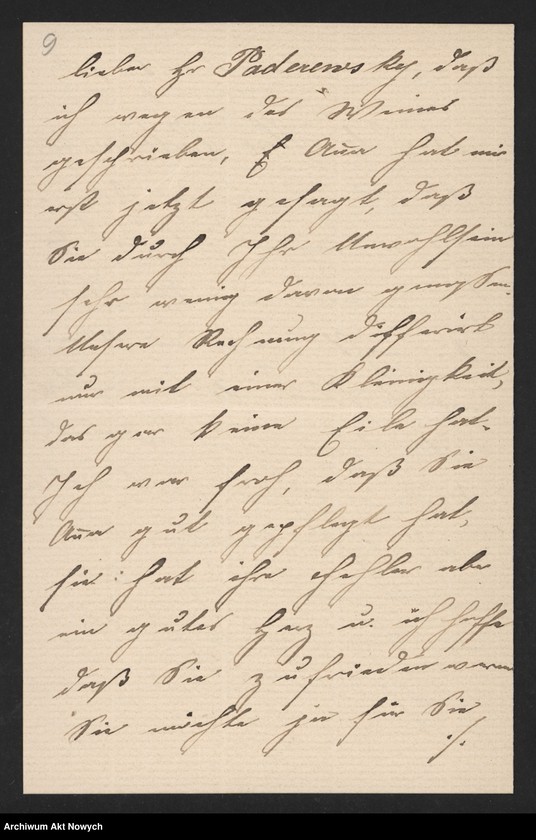 9
lieber Hr Paderewsky, daß
ich wegen des Weines
geschrieben, Anna hat mir
erst jetzt gesagt, daß
Sie durch Ihr Unwohlsein
sehr wenig davon genossen.
Unsere Rechnung differirt
nur mit einer Kleinigkeit,
das gar keine Eile hat.
Ich war froh, daß Sie
Anna gut gepflegt hat,
sie hat ihre Fehler aber
ein gutes Herz u. ich hoffe
daß Sie zufrieden waren
Sie möchte ja für Sie
./.
Archiwum Akt Nowych